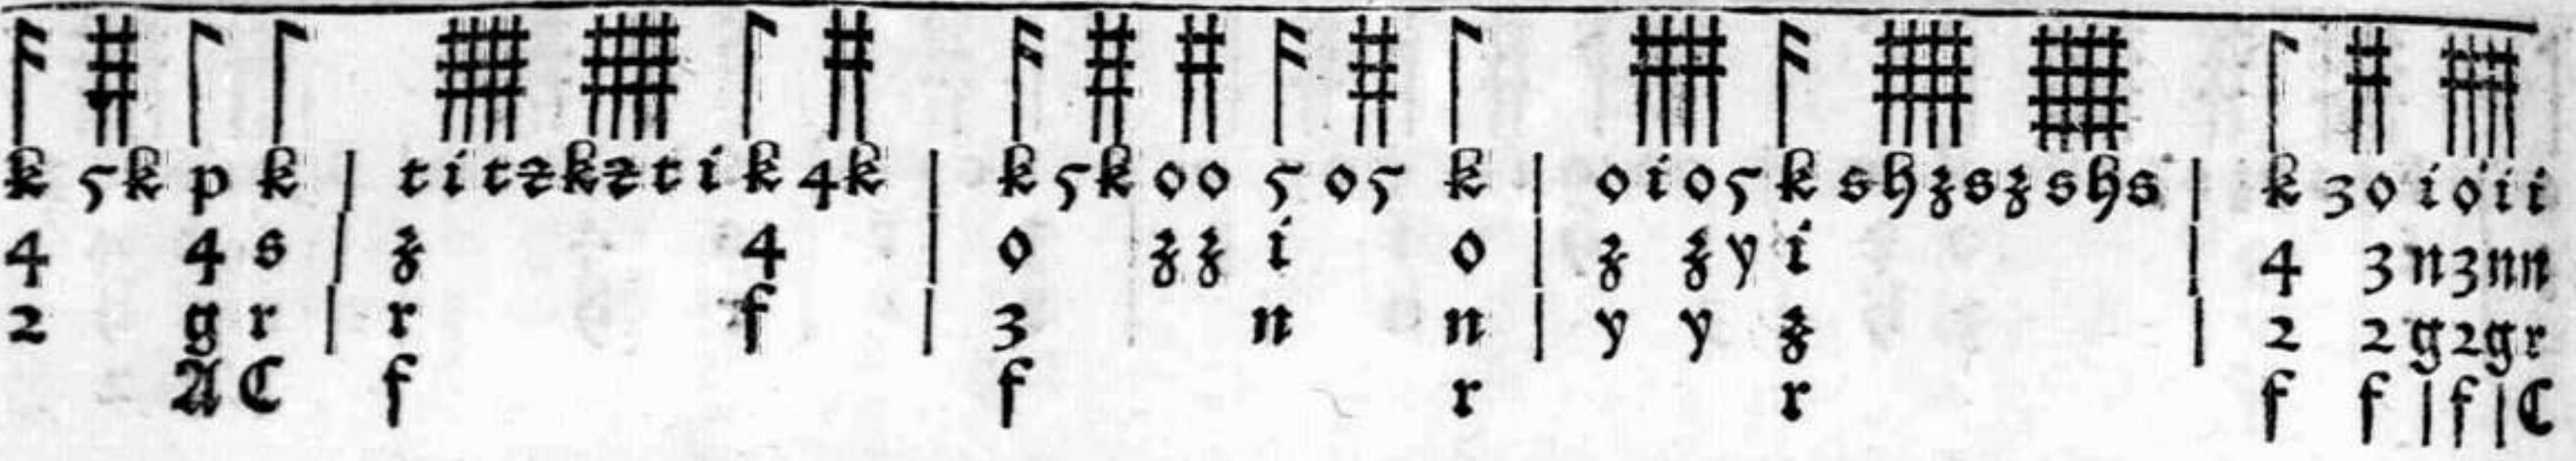 k 5 k p k | t i t z k z t i k 4 k | k 5 k o o 5 o 5 k | o i o 5 k s h ʒ s ʒ s h s | k 3 o i o i i
4 4 s | ʒ 4 | o ʒ ʒ i o | ʒ ʒ y i | 4 3 n 3 n n
2 g r | r f | 3 n n | y y ʒ | 2 2 g 2 g r
A C f f r r f f | f | C